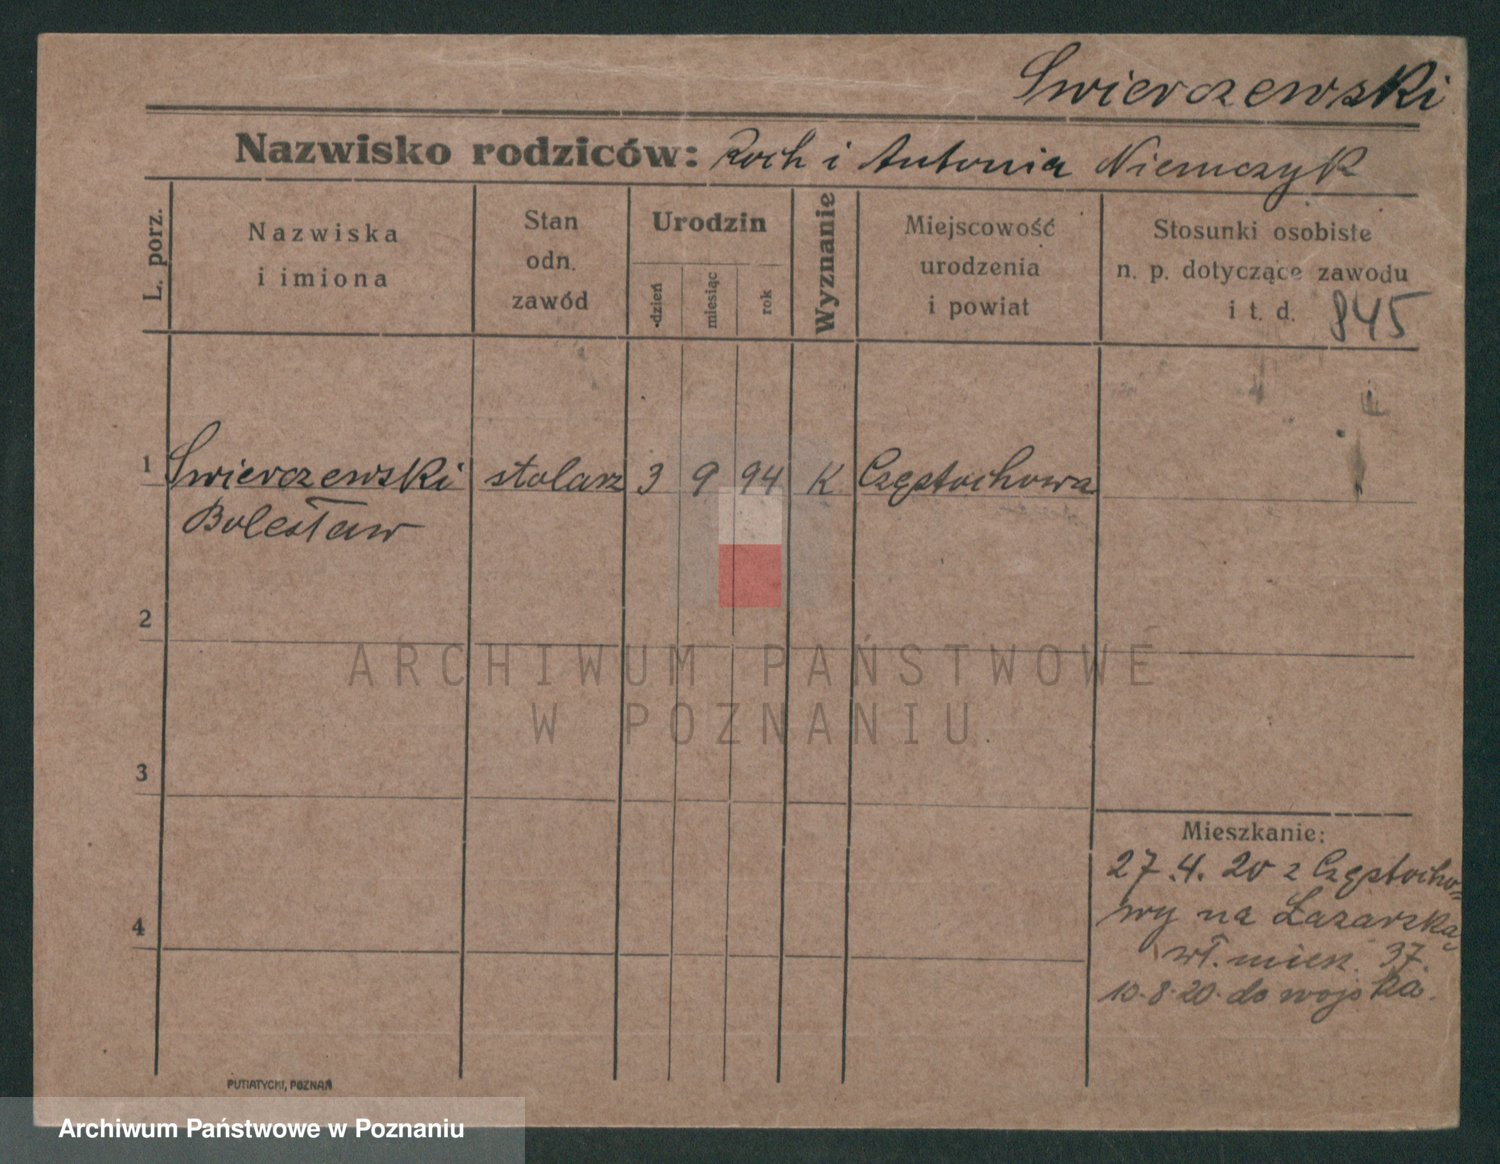 Swierczewski
Nazwisko rodziców: Roch i Antonia Niemczyk
L. porz.
Nazwiska
i imiona
Stan
odn.
zawód
Urodzin
dzień
miesiąc
rok
Wyznanie
Miejscowość
urodzenia
i powiat
Stosunki osobiste
n. p. dotyczące zawodu
i t. d. 845
1 Swierczewski stolarz 3 9 94 K Częstochowa
Bolesław
2
3
4
Mieszkanie:
27.4.20 z Częstocho-
wy na Łazarską
wł. miesz. 37.
10.8.20. do wojska.
PUTIATYCKI, POZNAŃ
ARCHIWUM PAŃSTWOWE
W POZNANIU
Archiwum Państwowe w Poznaniu